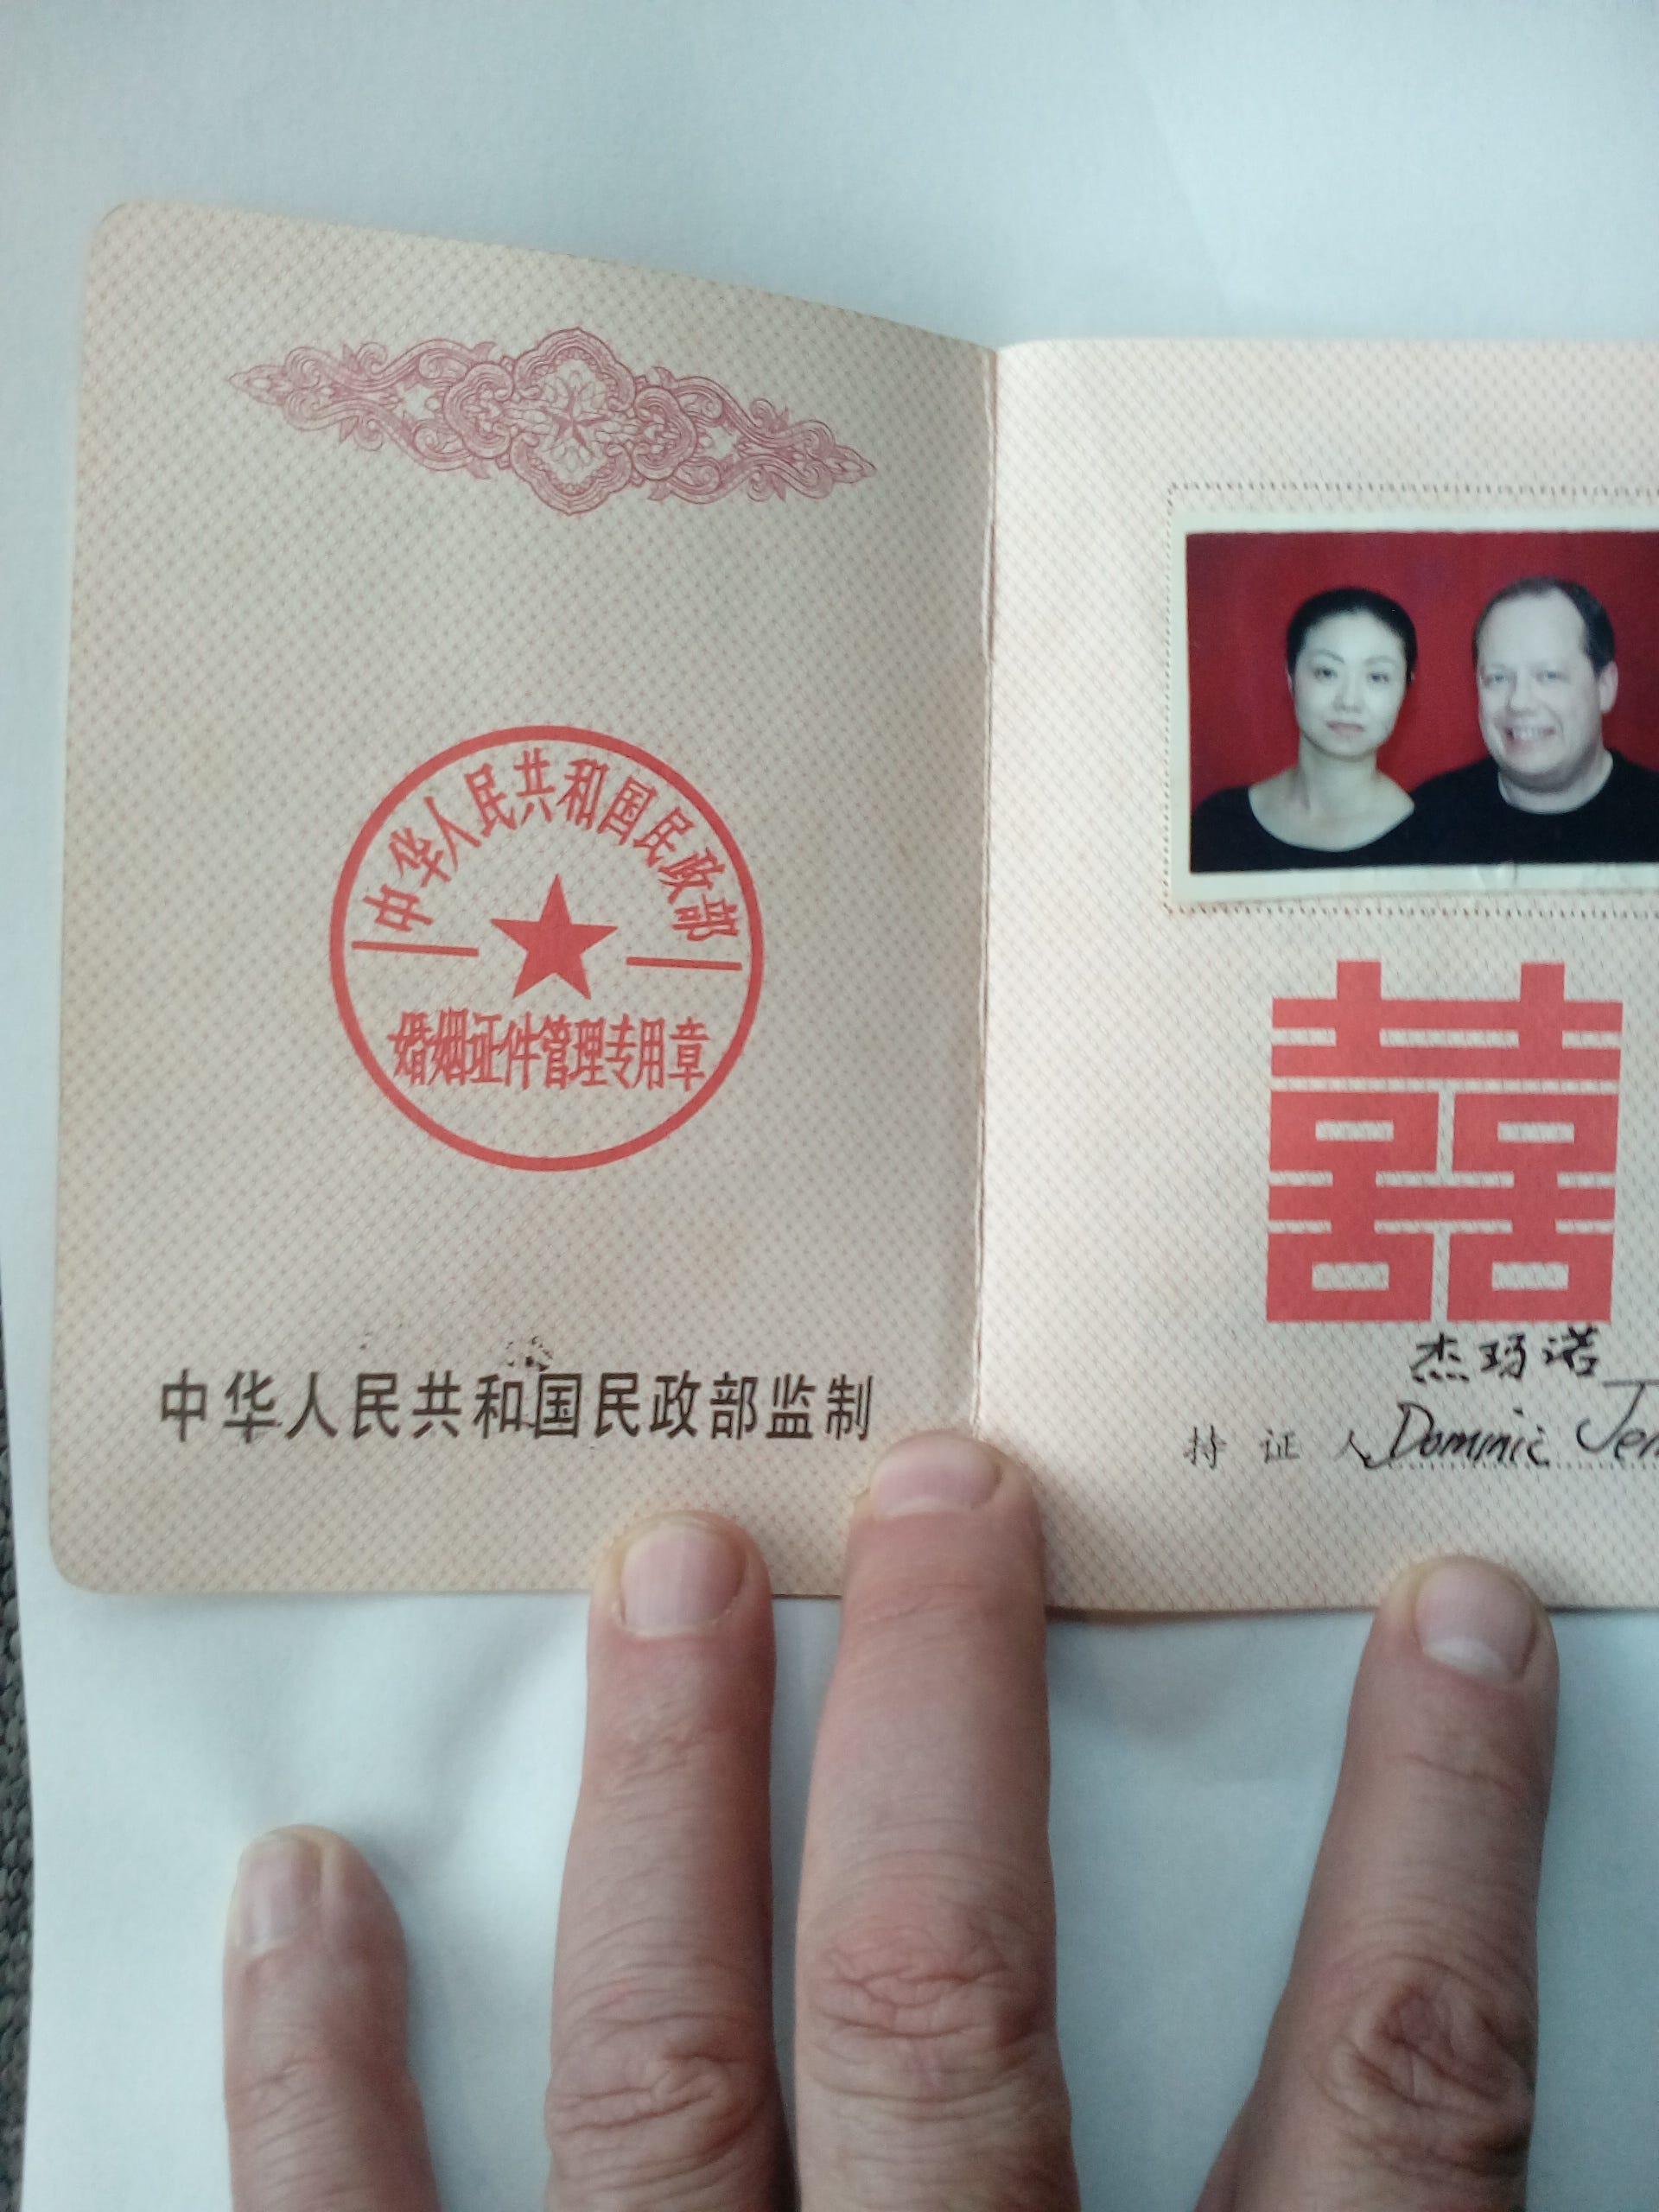 中华人民共和国民政部
婚姻证件管理专用章
中华人民共和国民政部监制
囍
杰玛诺
持证人 Dominic